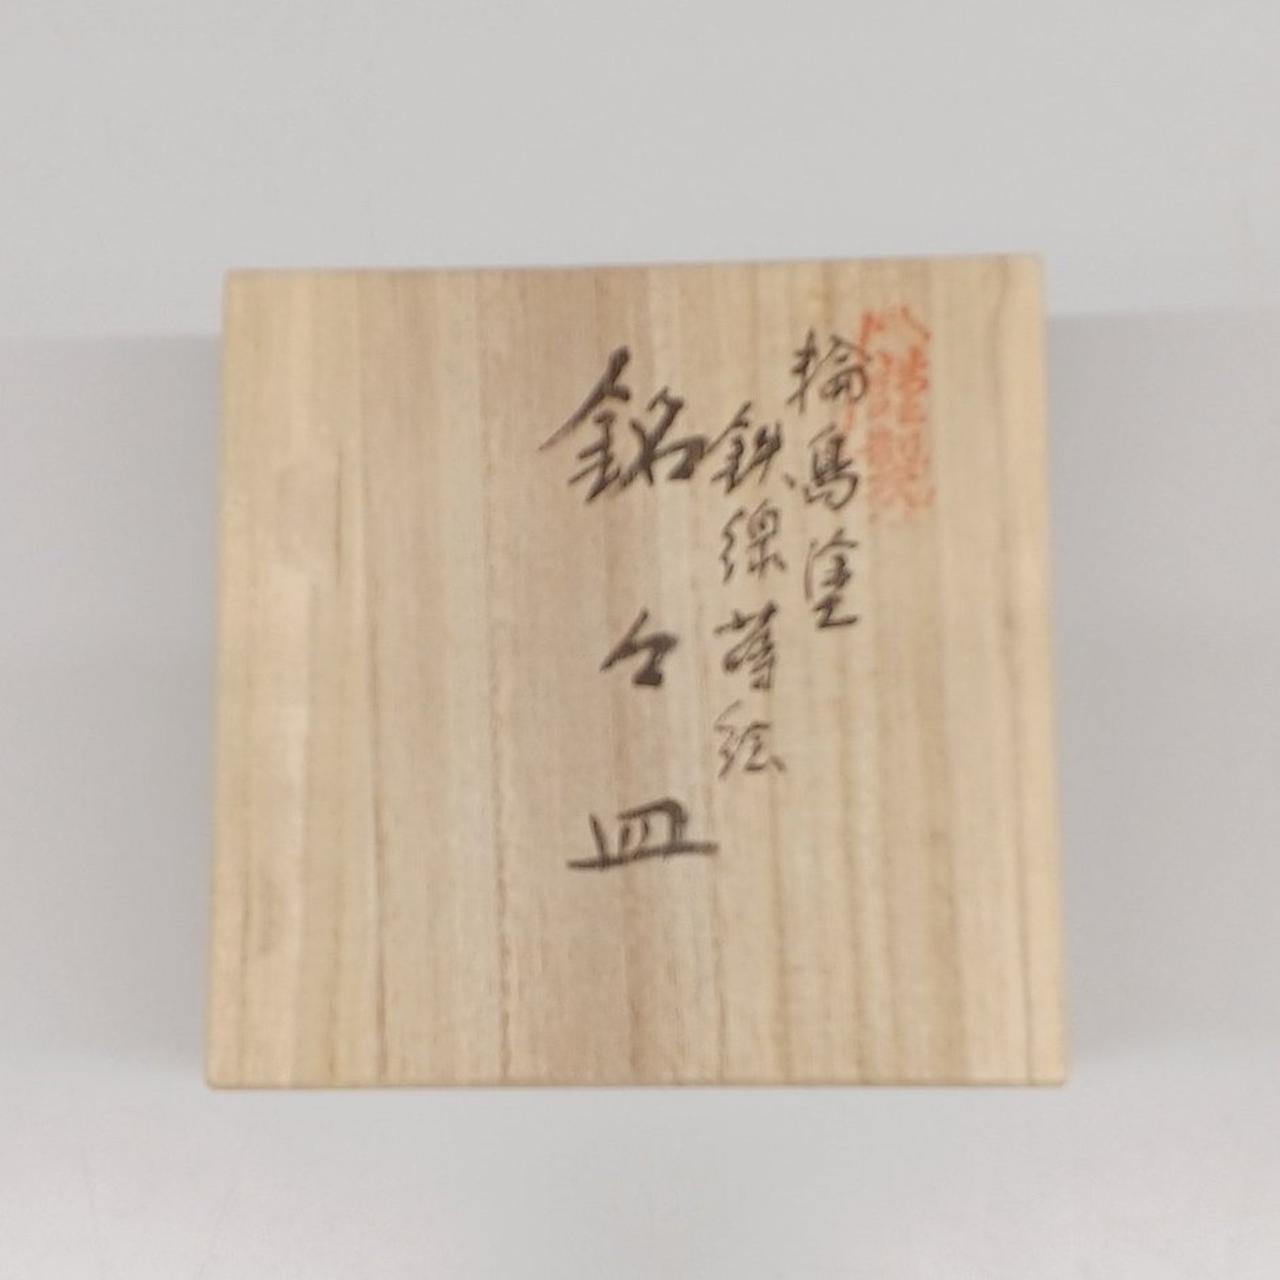 謹製
輪島塗
鉄線蒔絵
銘々皿